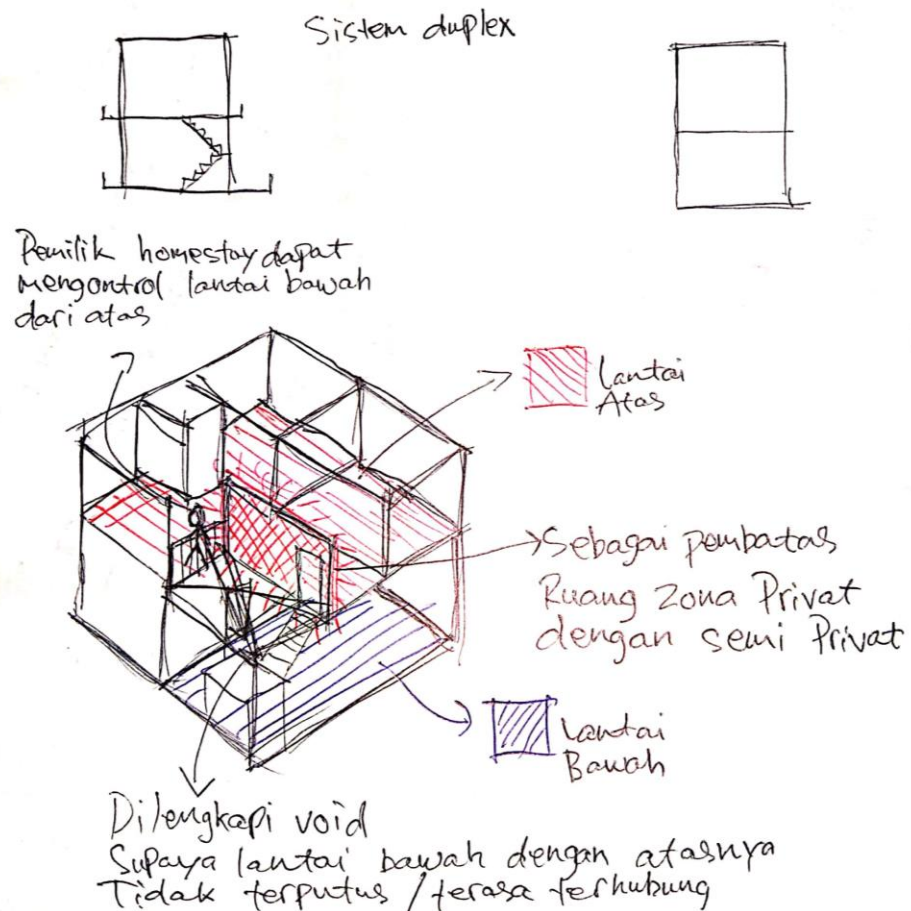 Sistem duplex
Pemilik homestay dapat
mengontrol lantai bawah
dari atas
Lantai
Atas
Sebagai pembatas
Ruang Zona Privat
dengan semi Privat
Lantai
Bawah
Dilengkapi void
Supaya lantai bawah dengan atasnya
Tidak terputus / terasa terhubung